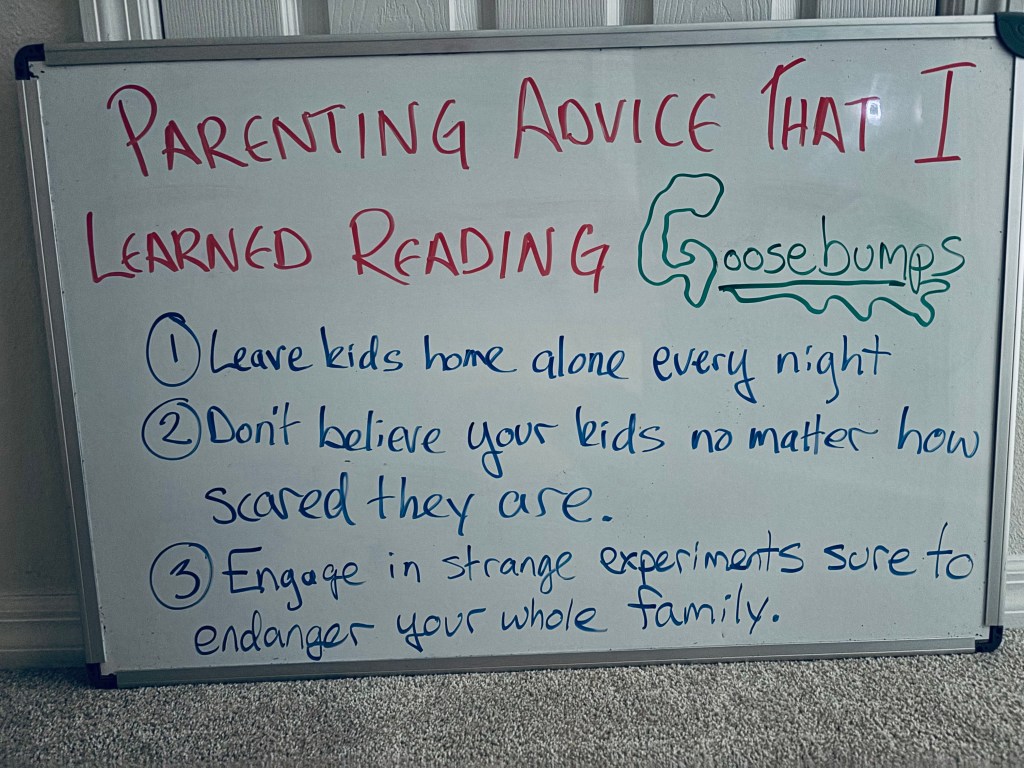 PARENTING ADVICE THAT I
LEARNED READING Goosebumps
① Leave kids home alone every night
② Don't believe your kids no matter how
scared they are.
③ Engage in strange experiments sure to
endanger your whole family.